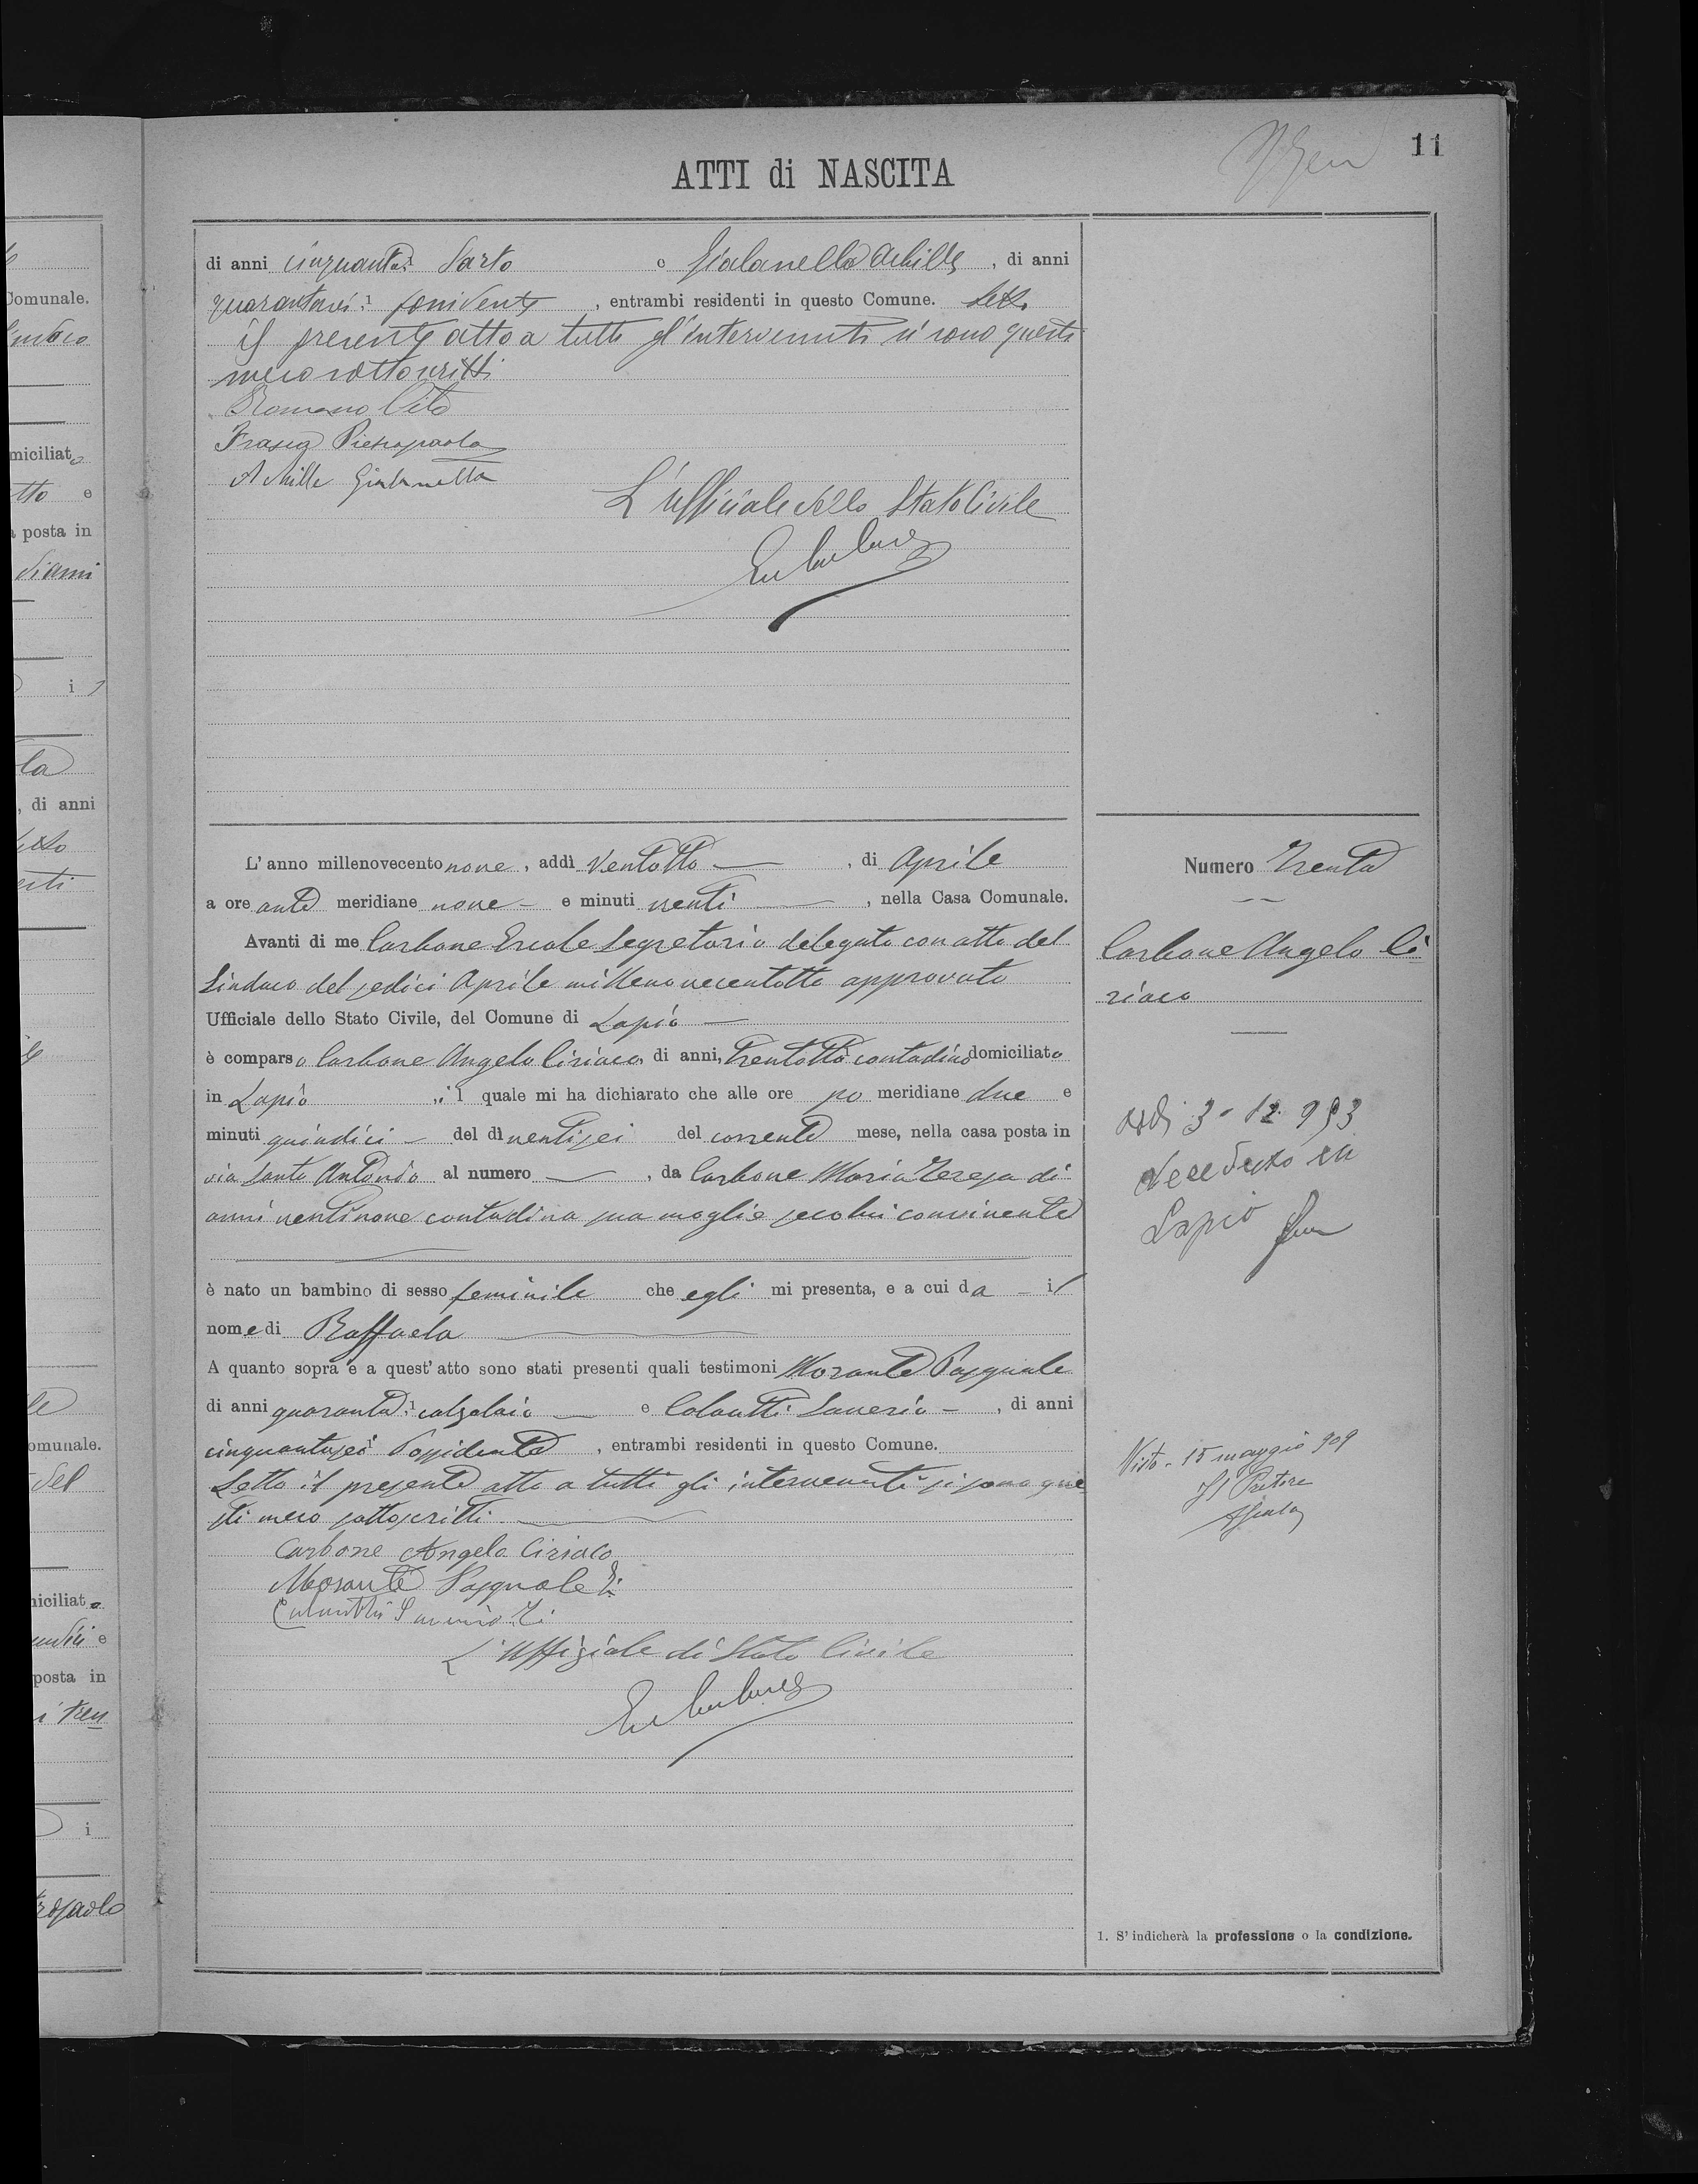 11
ATTI di NASCITA
di anni cinquanta Sarto e Gialanella Achille, di anni
quarantasei possidente, entrambi residenti in questo Comune. Letto
il presente atto a tutti gl'intervenuti si sono questi
meco sottoscritti
Romano Vito
Frasca Pietropaolo
Achille Gialanella
L'ufficiale dello Stato Civile
L'anno millenovecento nove, addì Ventotto, di Aprile
a ore ante meridiane nove e minuti venti, nella Casa Comunale.
Avanti di me Carbone Ercole Segretario delegato con atto del
Sindaco del sedici Aprile millenovecentotto approvato
Ufficiale dello Stato Civile, del Comune di Lapio
è comparso Carbone Angelo Ciriaco di anni, Trentotto contadino domiciliato
in Lapio, il quale mi ha dichiarato che alle ore po meridiane due e
minuti quindici del dì ventisei del corrente mese, nella casa posta in
via Santo Antonio al numero, da Carbone Maria Teresa di
anni ventinove contadina sua moglie seco lui convivente
è nato un bambino di sesso feminile che egli mi presenta, e a cui da il
nome di Raffaela
A quanto sopra e a quest'atto sono stati presenti quali testimoni Morante Pasquale
di anni quaranta, calzolaio e Colantti Saverio, di anni
cinquantasei Possidente, entrambi residenti in questo Comune.
Letto il presente atto a tutti gli intervenuti si sono que
sti meco sottoscritti
Carbone Angelo Ciriaco
Morante Pasquale
L'Uffiziale di Stato Civile
Numero Trenta
Carbone Angelo Ci=
riaco
Addì 3-12-953
deceduto in
Lapio
Visto - 15 maggio 909
Il Pretore
1. S'indicherà la professione o la condizione.
Comunale.
miciliato
tto e
posta in
la
, di anni
omunale.
del
iciliato
posta in
i